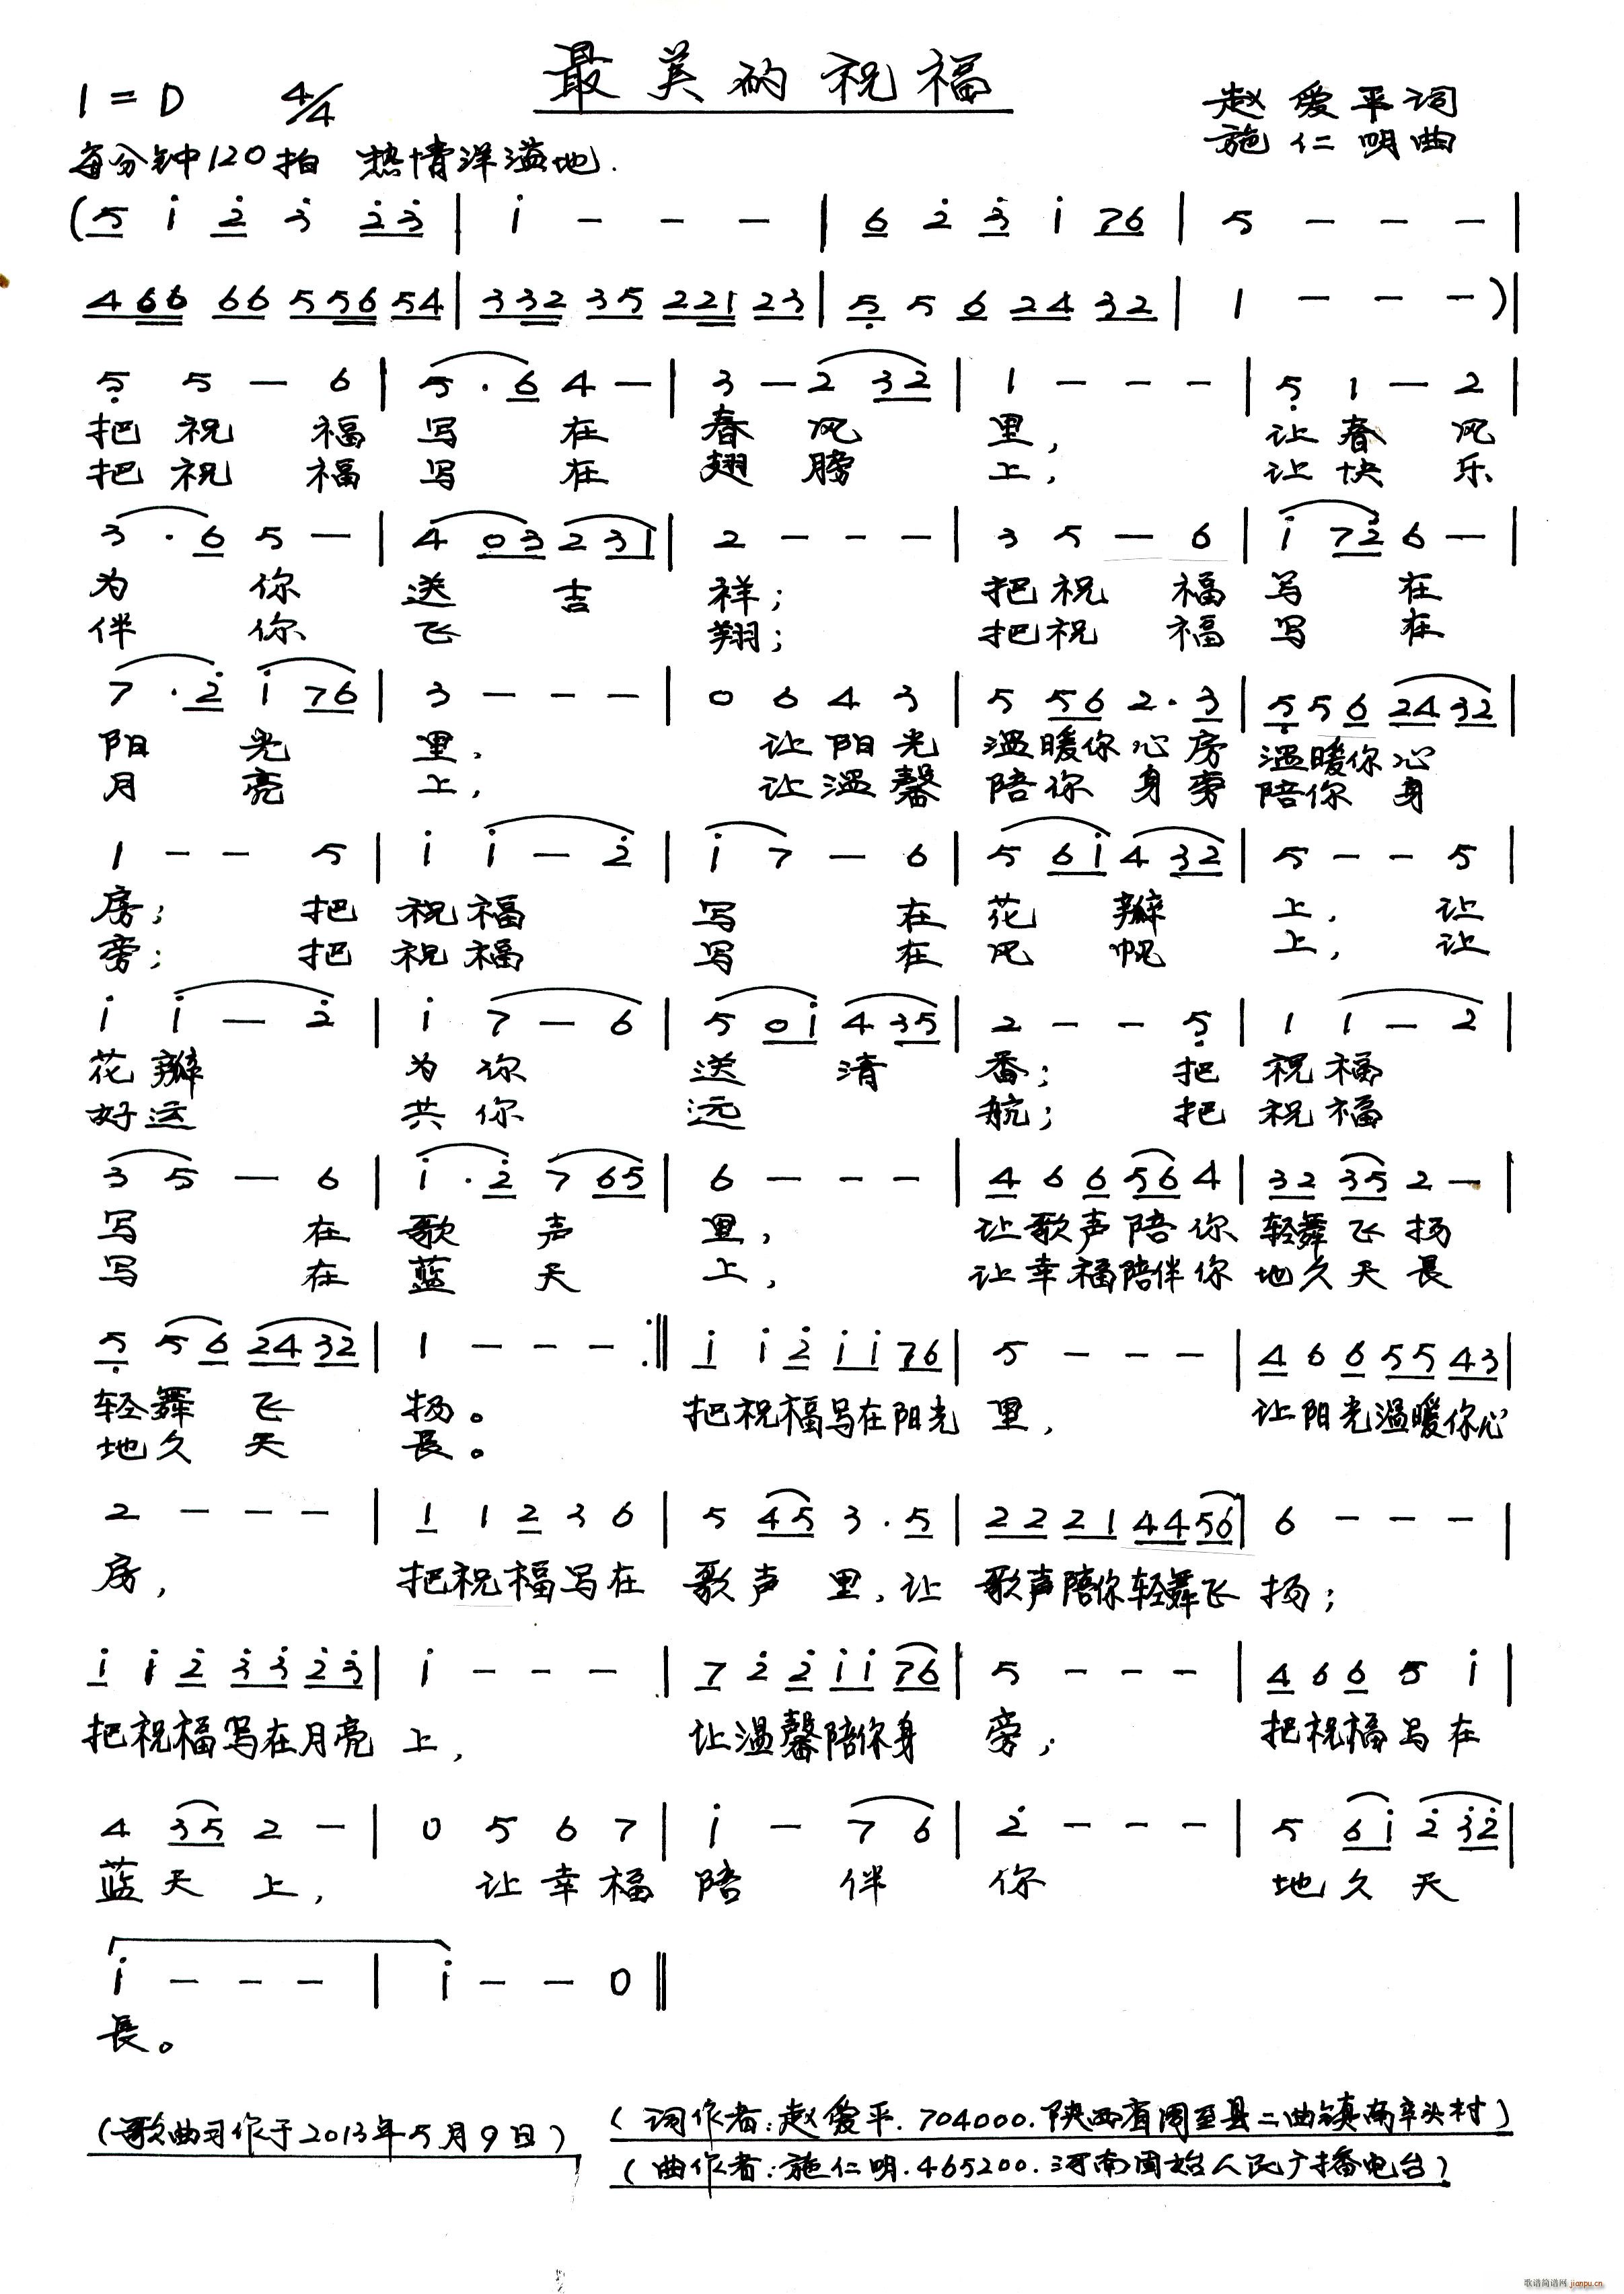 最美的祝福
1=D 4/4
赵爱平词
每分钟120拍 热情洋溢地.
施仁明曲
(5 i 2 3 23 | i - - - | 6 2 3 i 76 | 5 - - - |
466 66 556 54 | 332 35 221 23 | 5 5 6 24 32 | 1 - - -)|
5 5 - 6 | 5·6 4 - | 3 - 2 32 | 1 - - - | 5 1 - 2 |
把祝福写在春风里,让春风
把祝福写在翅膀上,让快乐
3·6 5 - | 4 03 2 31 | 2 - - - | 3 5 - 6 | i 72 6 - |
为你送吉祥;把祝福写在
伴你飞翔;把祝福写在
7·2 i 76 | 3 - - - | 0 6 4 3 | 5 56 2·3 | 5 5 6 24 32 |
阳光里,让阳光温暖你心房温暖你心
月亮上,让温馨陪你身旁陪你身
1 - - 5 | i i - 2 | i 7 - 6 | 5 6i 4 32 | 5 - - 5 |
房;把祝福写在花瓣上,让
旁;把祝福写在风帆上,让
i i - 2 | i 7 - 6 | 5 0i 4 35 | 2 - - 5 | 1 1 - 2 |
花瓣为你送清香;把祝福
好运共你远航;把祝福
3 5 - 6 | i·2 7 65 | 6 - - - | 4 6 6 56 4 | 32 35 2 - |
写在歌声里,让歌声陪你轻舞飞扬
写在蓝天上,让幸福陪伴你地久天長
5 5 6 24 32 | 1 - - - :‖ i i 2 i i 76 | 5 - - - | 4 6 6 55 43 |
轻舞飞扬。把祝福写在阳光里,让阳光温暖你心
地久天長。
2 - - - | 1 1 2 3 6 | 5 45 3·5 | 22 21 44 56 | 6 - - - |
房,把祝福写在歌声里,让歌声陪你轻舞飞扬;
i i 2 33 23 | i - - - | 7 2 2 i i 76 | 5 - - - | 4 6 6 5 i |
把祝福写在月亮上,让温馨陪你身旁,把祝福写在
4 35 2 - | 0 5 6 7 | i - 7 6 | 2 - - - | 5 6i 2 32 |
蓝天上,让幸福陪伴你地久天
i - - - | i - - 0 ‖
長。
(歌曲习作于2013年5月9日)
(词作者:赵爱平.704000.陕西省周至县二曲镇南辛头村)
(曲作者:施仁明.465200.河南固始人民广播电台)
歌谱简谱网 jianpu.cn